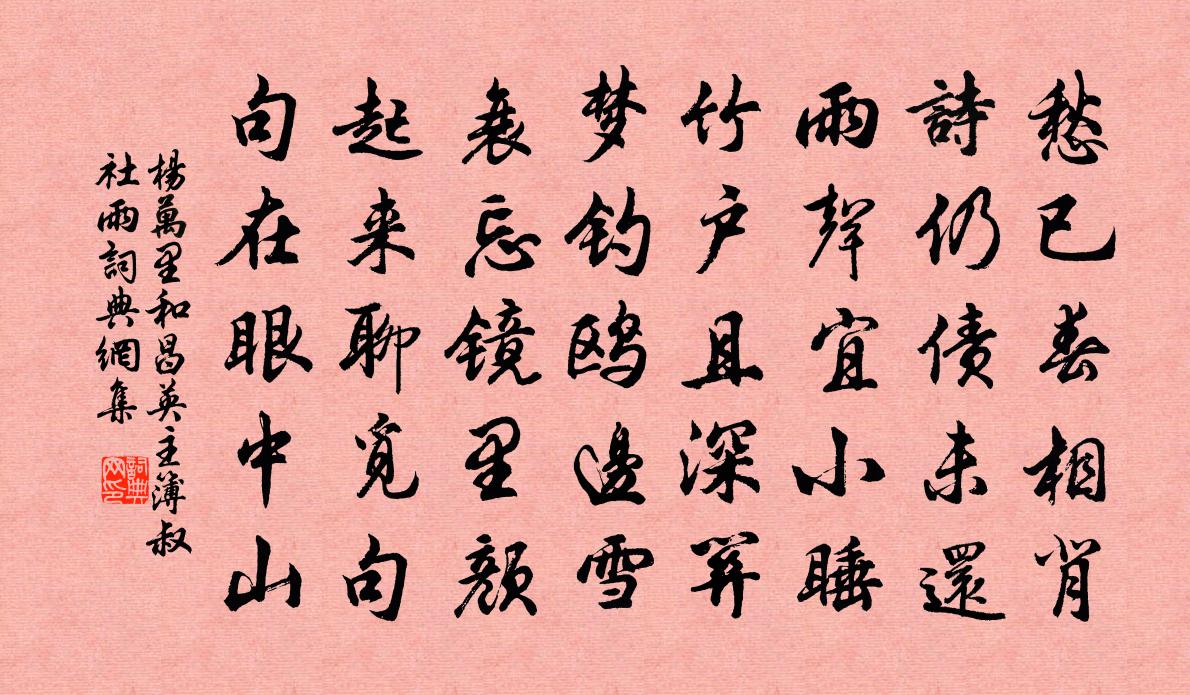 愁已春相肯
詩仍债未還
雨聲宜小睡
竹户且深关
梦钓鸥邊雪
衰忘镜里颜
起来聊觅句
句在眼中山
楊萬里和昌英主簿叔
社雨詞典網集
詞典
网印